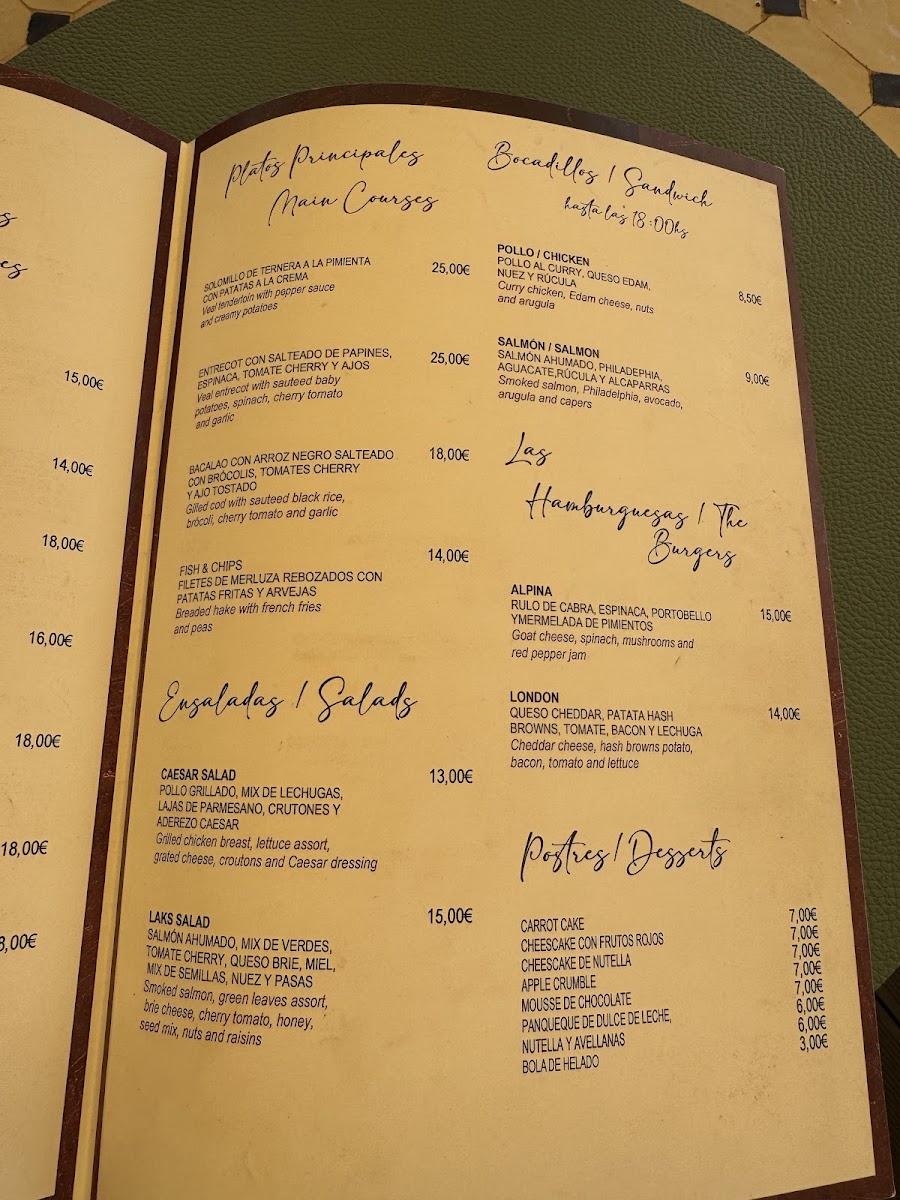 s
es
15,00€
14,00€
18,00€
16,00€
18,00€
18,00€
8,00€
Platos Principales
Main Courses
SOLOMILLO DE TERNERA A LA PIMIENTA
CON PATATAS A LA CREMA
25,00€
Veal tenderloin with pepper sauce
and creamy potatoes
ENTRECOT CON SALTEADO DE PAPINES,
ESPINACA, TOMATE CHERRY Y AJOS
25,00€
Veal entrecot with sauteed baby
potatoes, spinach, cherry tomato
and garlic
BACALAO CON ARROZ NEGRO SALTEADO
CON BRÓCOLIS, TOMATES CHERRY
Y AJO TOSTADO
18,00€
Gilled cod with sauteed black rice,
brócoli, cherry tomato and garlic
FISH & CHIPS
FILETES DE MERLUZA REBOZADOS CON
PATATAS FRITAS Y ARVEJAS
14,00€
Breaded hake with french fries
and peas
Ensaladas / Salads
CAESAR SALAD
13,00€
POLLO GRILLADO, MIX DE LECHUGAS,
LAJAS DE PARMESANO, CRUTONES Y
ADEREZO CAESAR
Grilled chicken breast, lettuce assort,
grated cheese, croutons and Caesar dressing
LAKS SALAD
15,00€
SALMÓN AHUMADO, MIX DE VERDES,
TOMATE CHERRY, QUESO BRIE, MIEL,
MIX DE SEMILLAS, NUEZ Y PASAS
Smoked salmon, green leaves assort,
brie cheese, cherry tomato, honey,
seed mix, nuts and raisins
Bocadillos / Sandwich
hasta las 18:00hs
POLLO / CHICKEN
POLLO AL CURRY, QUESO EDAM,
NUEZ Y RÚCULA
8,50€
Curry chicken, Edam cheese, nuts
and arugula
SALMÓN / SALMON
SALMÓN AHUMADO, PHILADEPHIA,
AGUACATE,RÚCULA Y ALCAPARRAS
9,00€
Smoked salmon, Philadelphia, avocado,
arugula and capers
Las
Hamburguesas / The
Burgers
ALPINA
RULO DE CABRA, ESPINACA, PORTOBELLO
YMERMELADA DE PIMIENTOS
15,00€
Goat cheese, spinach, mushrooms and
red pepper jam
LONDON
QUESO CHEDDAR, PATATA HASH
BROWNS, TOMATE, BACON Y LECHUGA
14,00€
Cheddar cheese, hash browns potato,
bacon, tomato and lettuce
Postres / Desserts
CARROT CAKE 7,00€
CHEESCAKE CON FRUTOS ROJOS 7,00€
CHEESCAKE DE NUTELLA 7,00€
APPLE CRUMBLE 7,00€
MOUSSE DE CHOCOLATE 7,00€
PANQUEQUE DE DULCE DE LECHE, 6,00€
NUTELLA Y AVELLANAS 6,00€
BOLA DE HELADO 3,00€